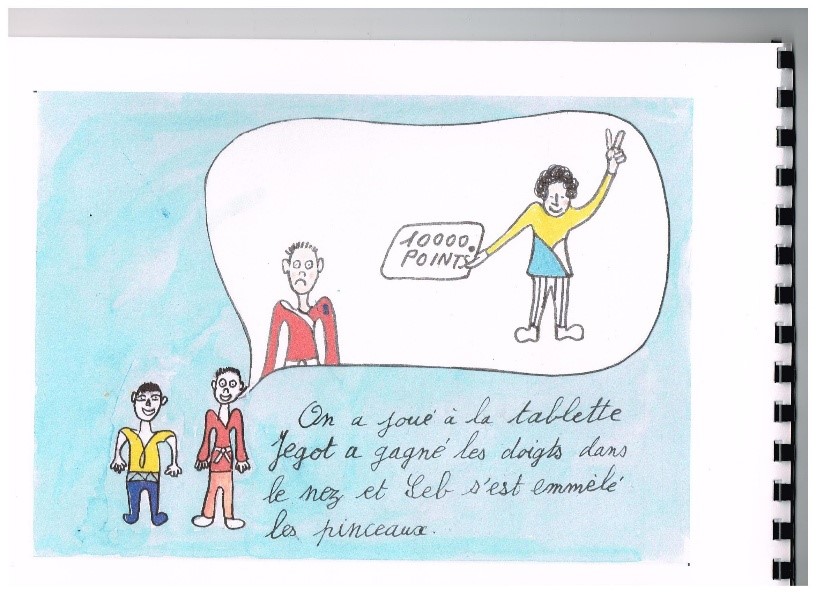 10000
POINTS
On a joué à la tablette
Jegot a gagné les doigts dans
le nez et Seb s'est emmêlé
les pinceaux.